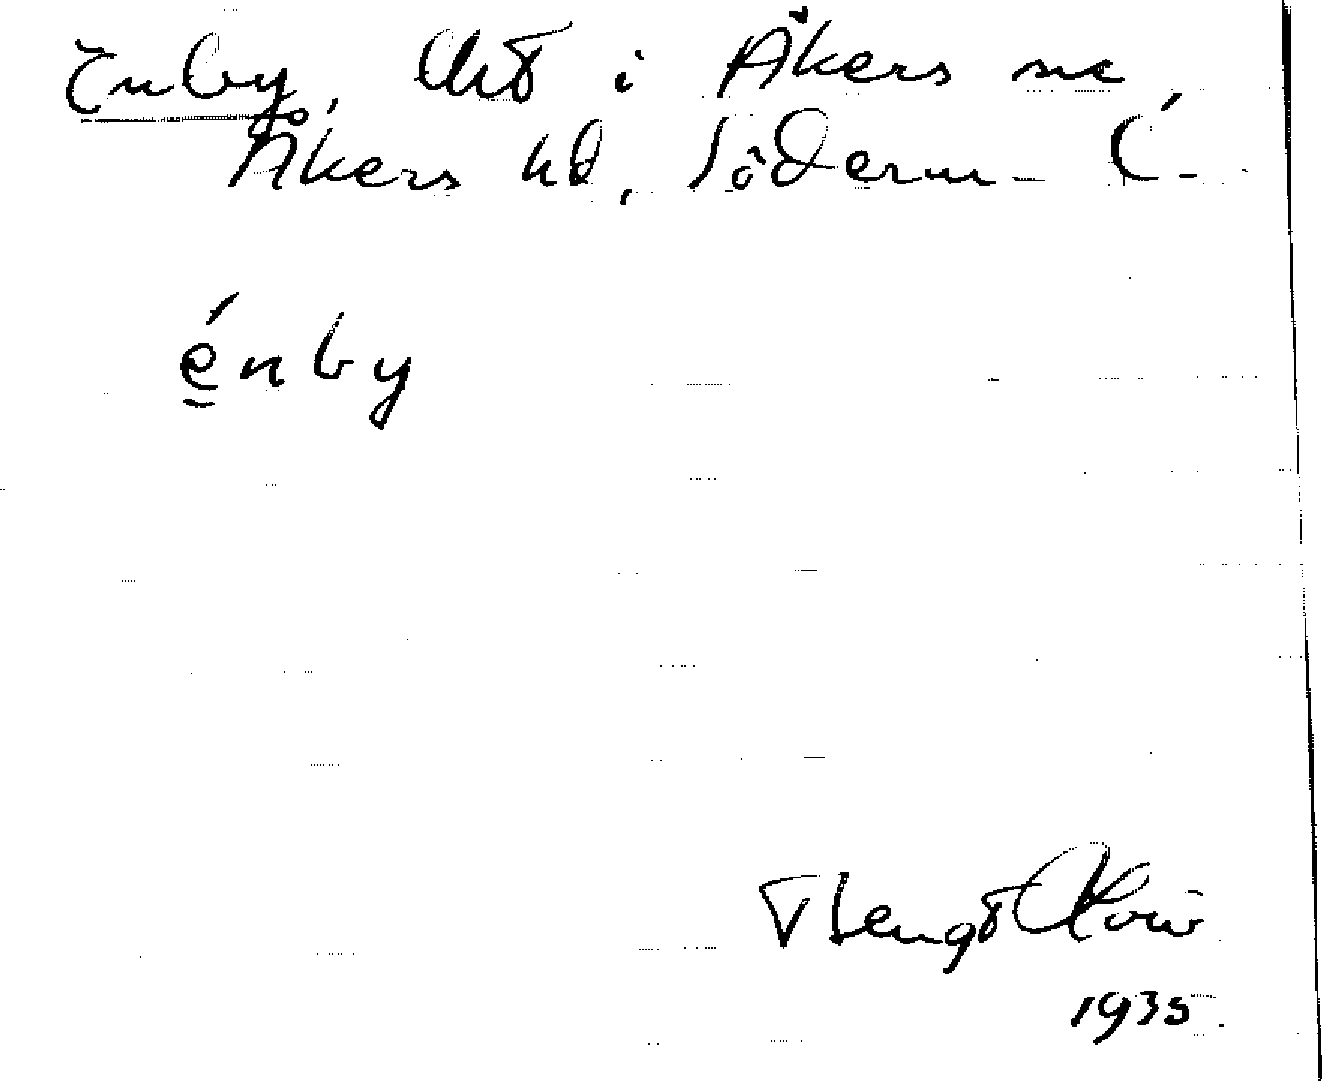 Enby, Utb i Åkers sn
Åkers hd, Söderm. l.
énby
Bengt
1935.